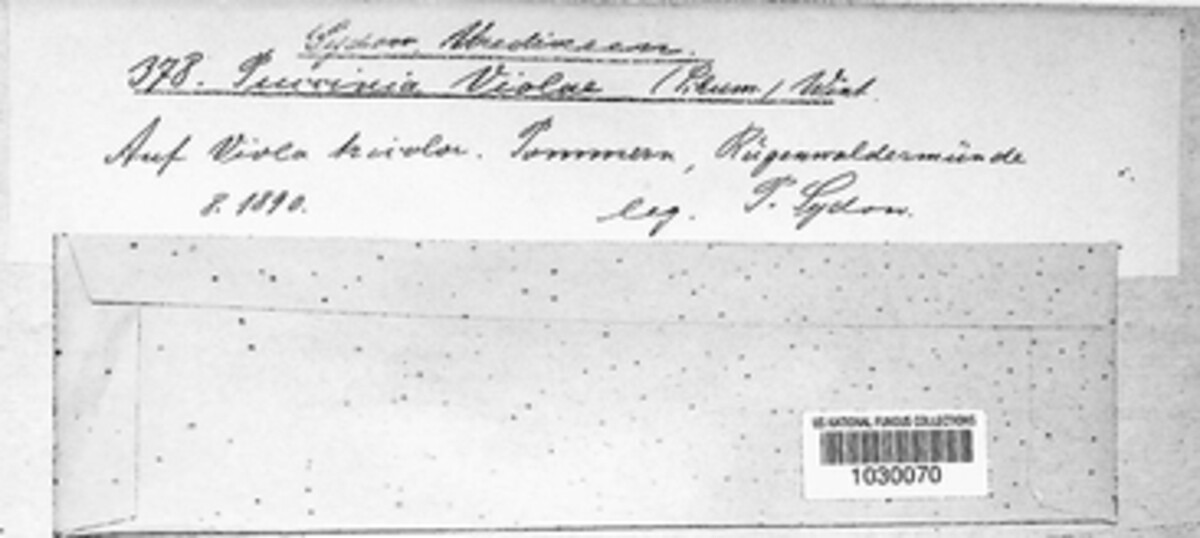 Sydow, Uredineen.
378. Puccinia Violae (Schum.) Wint.
Auf Viola tricolor. Pommern, Rügenwaldermünde
8. 1890. leg. P. Sydow.
US NATIONAL FUNGUS COLLECTIONS
1030070